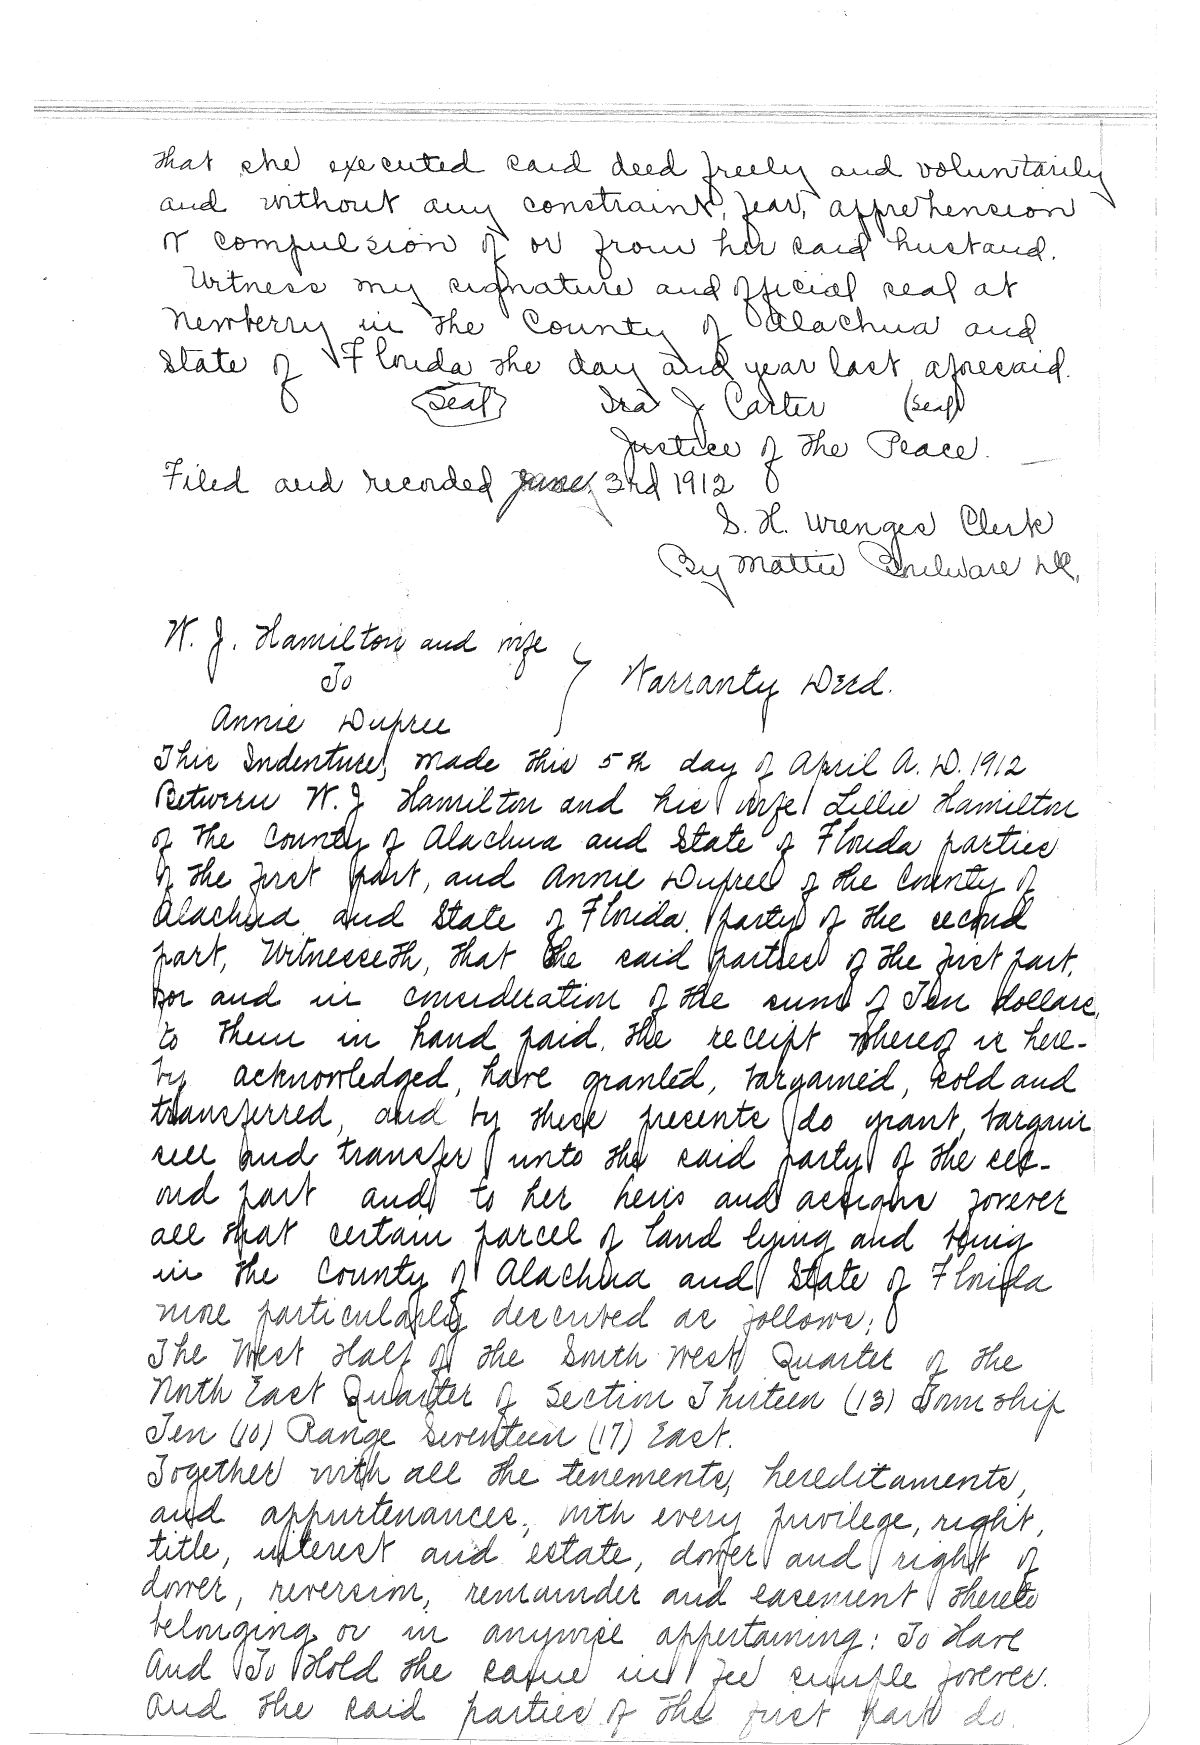 that she executed said deed freely and voluntarily
and without any constraint, fear, apprehension
or compulsion of or from her said husband.
Witness my signature and official seal at
Newberry in the County of Alachua and
State of Florida the day and year last aforesaid.
(Seal) Ira J Carter (Seal)
Justice of the Peace.
Filed and recorded June 3rd 1912
S. H. Wienges Clerk
By Mattie
W. J. Hamilton and wife
To
Warranty Deed.
Annie Dupree
This Indenture, made this 5th day of April A. D. 1912
Between W. J Hamilton and his wife Lillie Hamilton
of the County of Alachua and State of Florida parties
of the first part, and Annie Dupree of the County of
Alachua and State of Florida. party of the second
part, Witnesseth, that the said parties of the first part,
for and in consideration of the sum of Ten dollars,
to them in hand paid. the receipt whereof is here-
by acknowledged, have granted, bargained, sold and
transferred, and by these presents do grant, bargain
sell and transfer unto the said party of the sec-
ond part and to her heirs and assigns forever
all that certain parcel of land lying and being
in the County of Alachua and State of Florida
more particularly described as follows:
The West Half of the South West Quarter of the
North East Quarter of Section Thirteen (13) Township
Ten (10) Range Seventeen (17) East.
Together with all the tenements, hereditaments,
and appurtenances, with every privilege, right,
title, interest and estate, dower and right of
dower, reversion, remainder and easement thereto
belonging or in anywise appertaining: To Have
And To Hold the same in fee simple forever.
And the said parties of the first part do